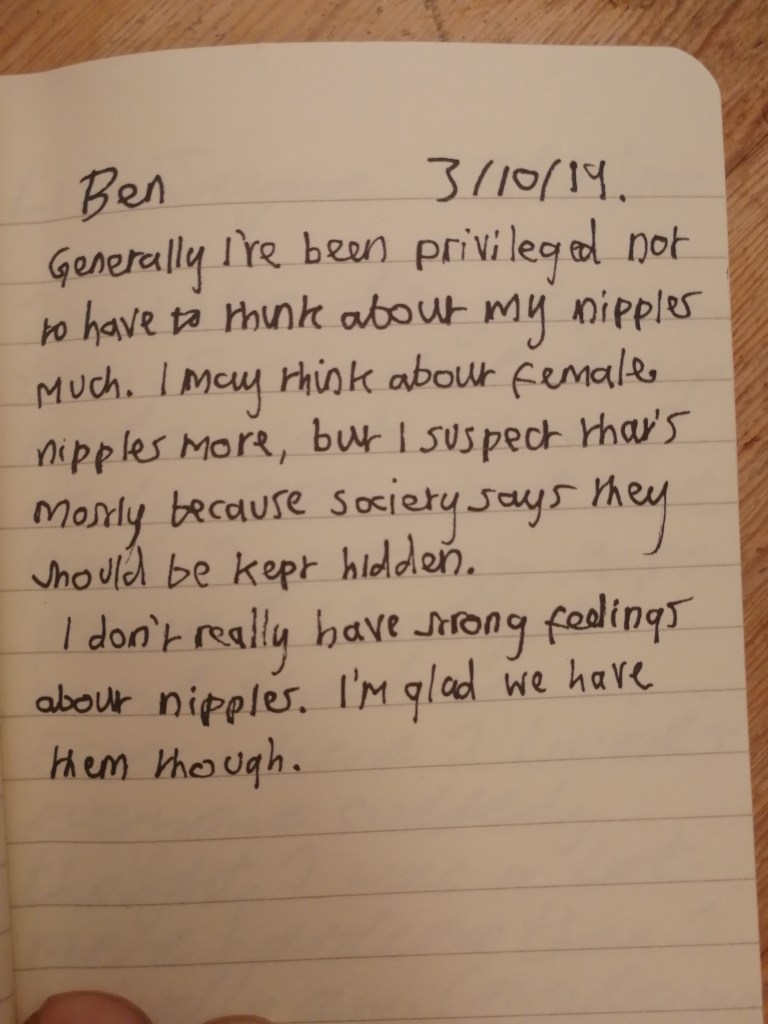 Ben 3/10/19.
Generally I've been privileged not
to have to think about my nipples
much. I may think about female
nipples more, but I suspect that's
mostly because society says they
should be kept hidden.
I don't really have strong feelings
about nipples. I'm glad we have
them though.